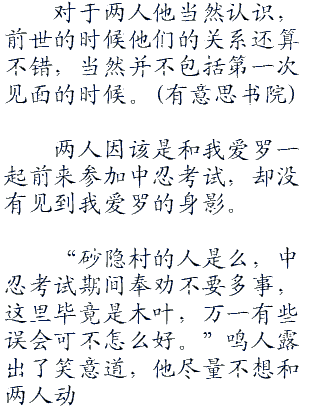 对于两人他当然认识，
前世的时候他们的关系还算
不错，当然并不包括第一次
见面的时候。(有意思书院)
两人因该是和我爱罗一
起前来参加中忍考试，却没
有见到我爱罗的身影。
“砂隐村的人是么，中
忍考试期间奉劝不要多事，
这里毕竟是木叶，万一有些
误会可不怎么好。”鸣人露
出了笑意道，他尽量不想和
两人动